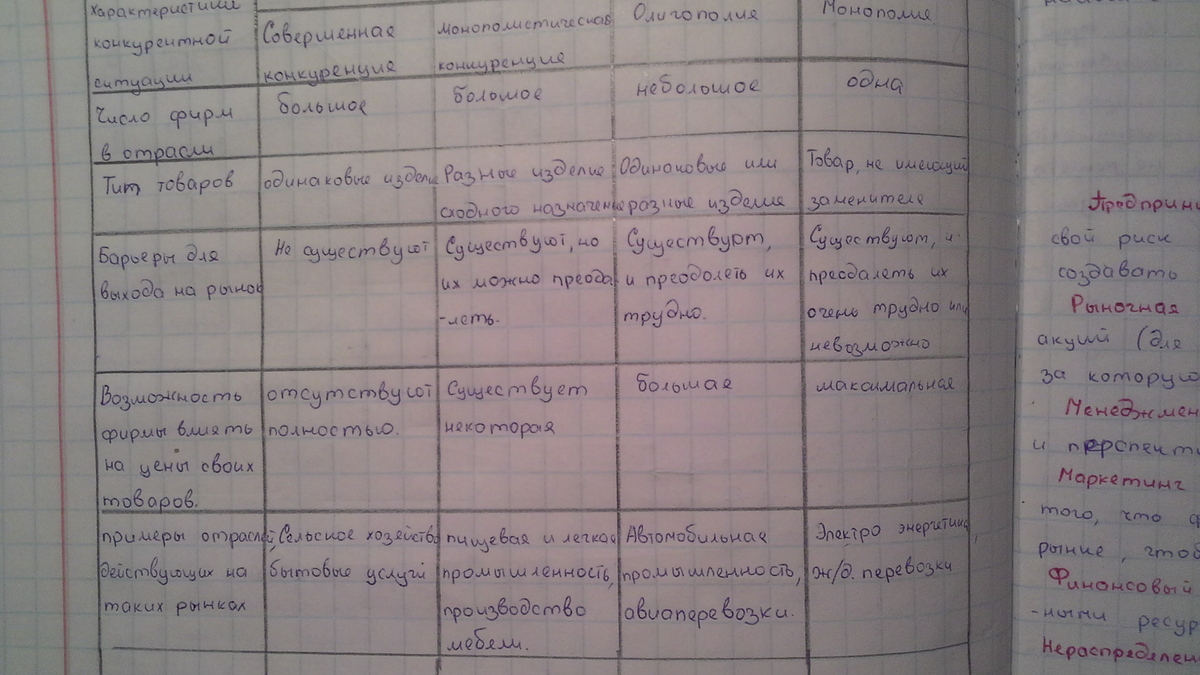 характеристики
конкурентной
ситуации
Совершенная
конкуренция
монополистическая
конкуренция
Олигополия
Монополия
Число фирм
в отрасли
большое
большое
небольшое
одна
Тип товаров
одинаковые изделие
Разные изделие
сходного назначение
Одинаковые или
разные изделие
Товар, не имеющий
заменителе
Барьеры для
выхода на рынок
Не существуют
Существуют, но
их можно преодо
-леть.
Существуют,
и преодолеть их
трудно.
Существуют, и
преодалеть их
очень трудно или
невозможно
Возможность
фирмы влиять
на цены своих
товаров.
отсутствуют
полностью.
Существует
некоторая
большая
максимальная
примеры отраслей,
действующих на
таких рынках
Сельское хозяйство
бытовые услуги
пищевая и легкая
промышленность,
производство
мебели.
Автомобильная
промышленность,
авиаперевозки.
Электро энергитика,
ж/д. перевозки
свой риск
создавать
Рыночная
акций (для
за которую
и
Маркетинг
того, что
рынке,
Финансовый